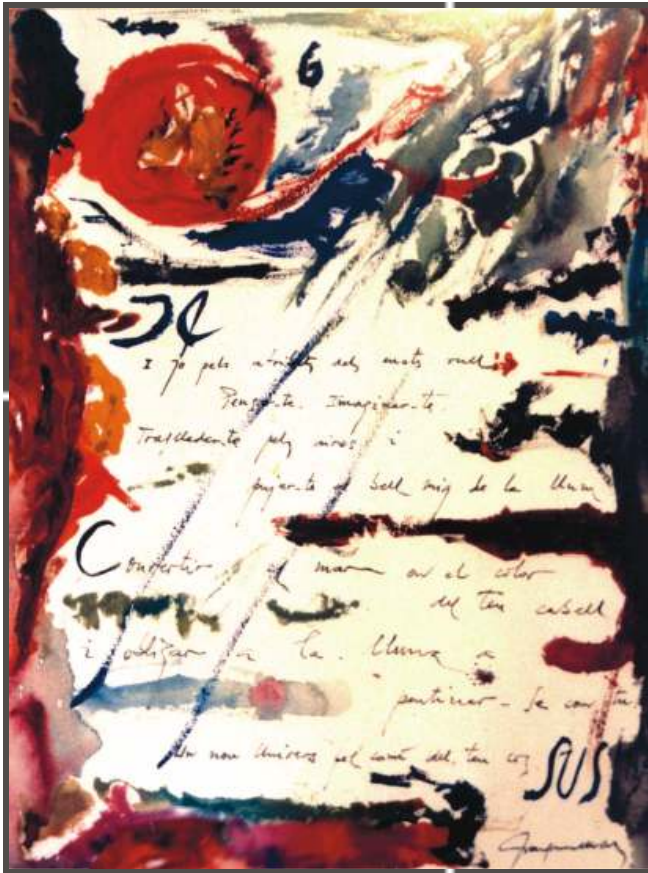 6
I jo pels dels mots
Pensar-te. Imaginar-te.
Traslladar-te pels aires i
pujar-te al bell mig de la llum
Convertir el mar en el color
del teu cabell
i obligar a la lluna a
pentinar-se com tu
Un nou Univers pel camí del teu cos
SUS